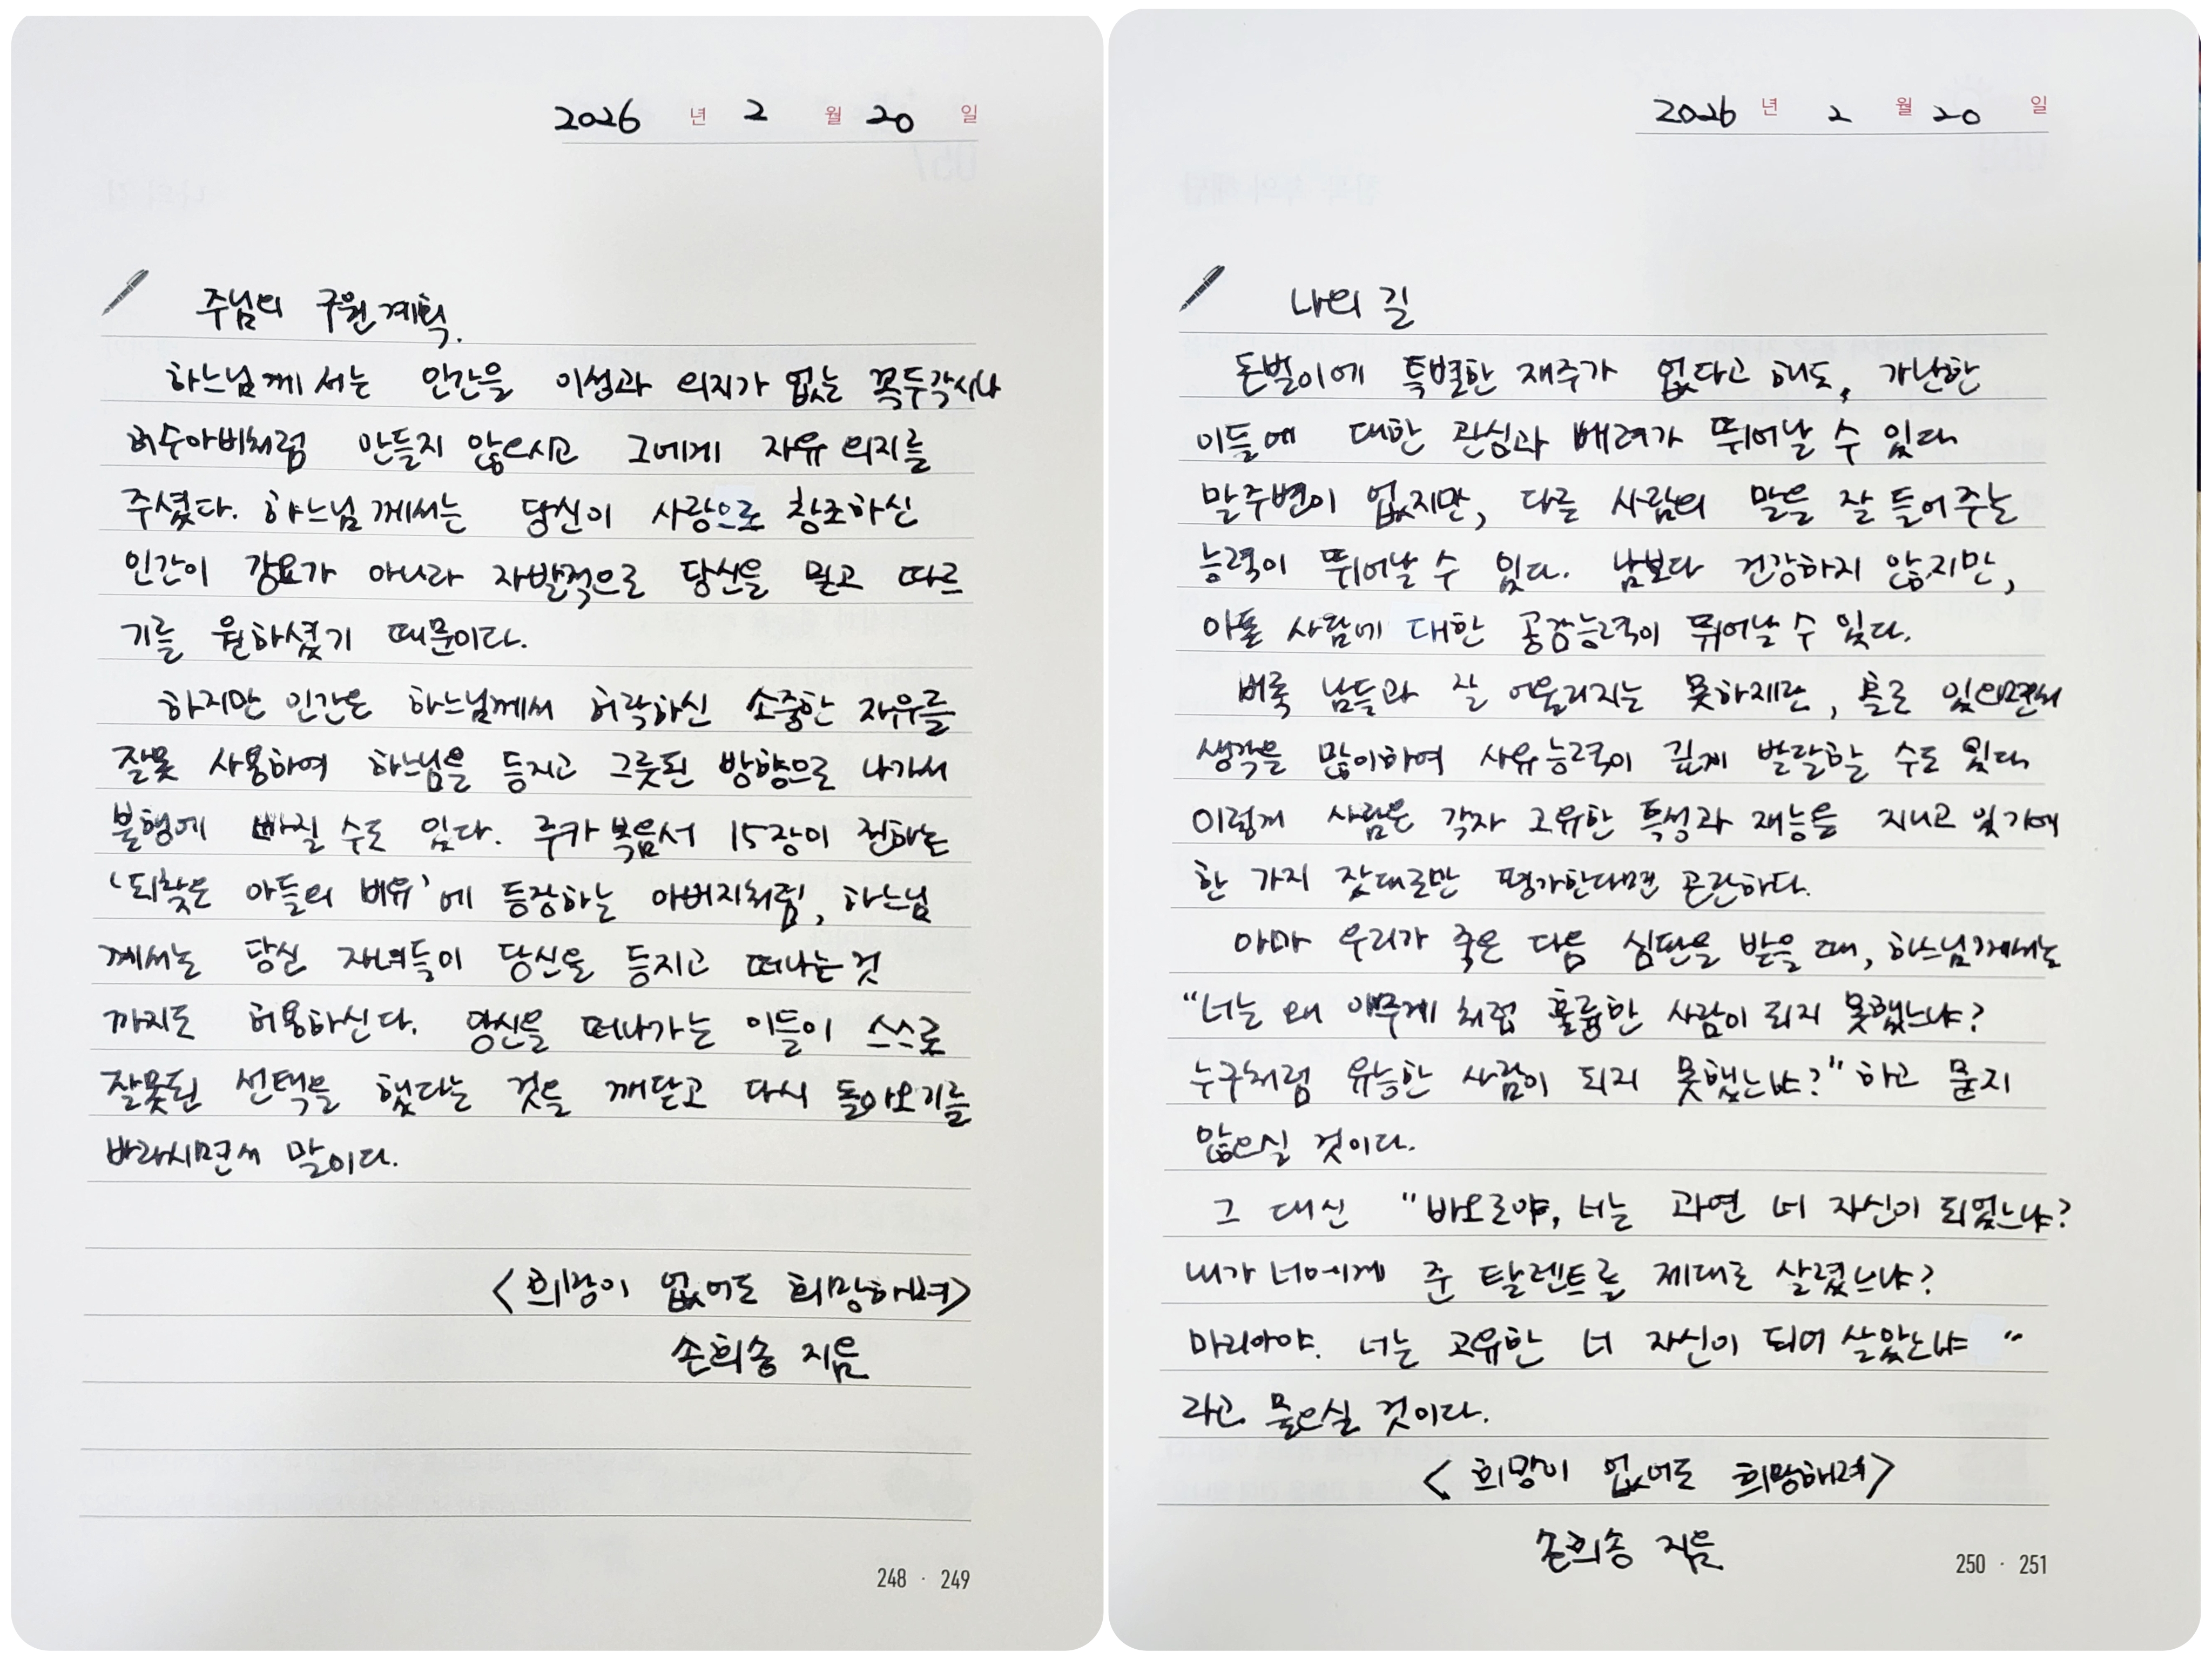 2026 년 2 월 20 일
주님의 구원 계획.
하느님께서는 인간을 이성과 의지가 없는 꼭두각시나
허수아비처럼 만들지 않으시고 그에게 자유 의지를
주셨다. 하느님께서는 당신이 사랑으로 창조하신
인간이 강요가 아니라 자발적으로 당신을 믿고 따르
기를 원하셨기 때문이다.
하지만 인간은 하느님께서 허락하신 소중한 자유를
잘못 사용하여 하느님을 등지고 그릇된 방향으로 나가서
불행에 빠질 수도 있다. 루카 복음서 15장이 전하는
'되찾은 아들의 비유'에 등장하는 아버지처럼, 하느님
께서는 당신 자녀들이 당신을 등지고 떠나는 것
까지도 허용하신다. 당신을 떠나가는 이들이 스스로
잘못된 선택을 했다는 것을 깨닫고 다시 돌아오기를
바라시면서 말이다.
<희망이 없어도 희망하며>
손희송 지음
248 · 249
2026 년 2 월 20 일
나의 길
돈벌이에 특별한 재주가 없다고 해도, 가난한
이들에 대한 관심과 배려가 뛰어날 수 있다
말주변이 없지만, 다른 사람의 말을 잘 들어주는
능력이 뛰어날 수 있다. 남보다 건강하지 않지만,
아픈 사람에 대한 공감능력이 뛰어날 수 있다.
비록 남들과 잘 어울리지는 못하지만, 홀로 있으면서
생각을 많이하여 사유능력이 깊게 발달할 수도 있다
이렇게 사람은 각자 고유한 특성과 재능을 지니고 있기에
한 가지 잣대로만 평가한다면 곤란하다.
아마 우리가 죽은 다음 심판을 받을 때, 하느님께서는
"너는 왜 아무개처럼 훌륭한 사람이 되지 못했느냐?
누구처럼 유능한 사람이 되지 못했느냐?" 하고 묻지
않으실 것이다.
그 대신 "바오로야, 너는 과연 네 자신이 되었느냐?
내가 너에게 준 탈렌트를 제대로 살렸느냐?
마리아야. 너는 고유한 너 자신이 되어 살았느냐"
라고 물으실 것이다.
<희망이 없어도 희망하며>
손희송 지음
250 · 251